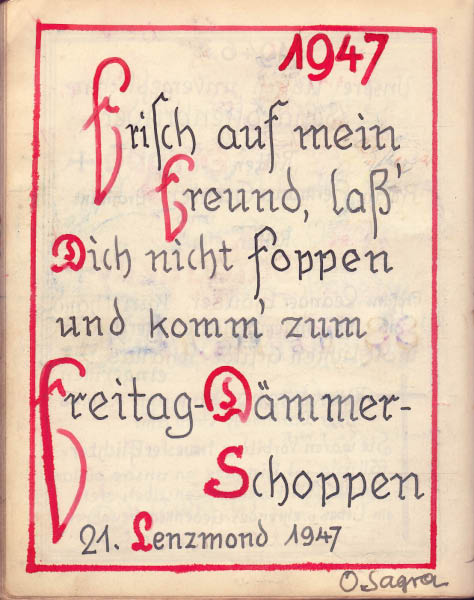 1947
Friſch auf mein
Freund, laß'
Dich nicht foppen
und komm' zum
Freitag-Dämmer-
Schoppen
21. Lenzmond 1947
O. Sagra